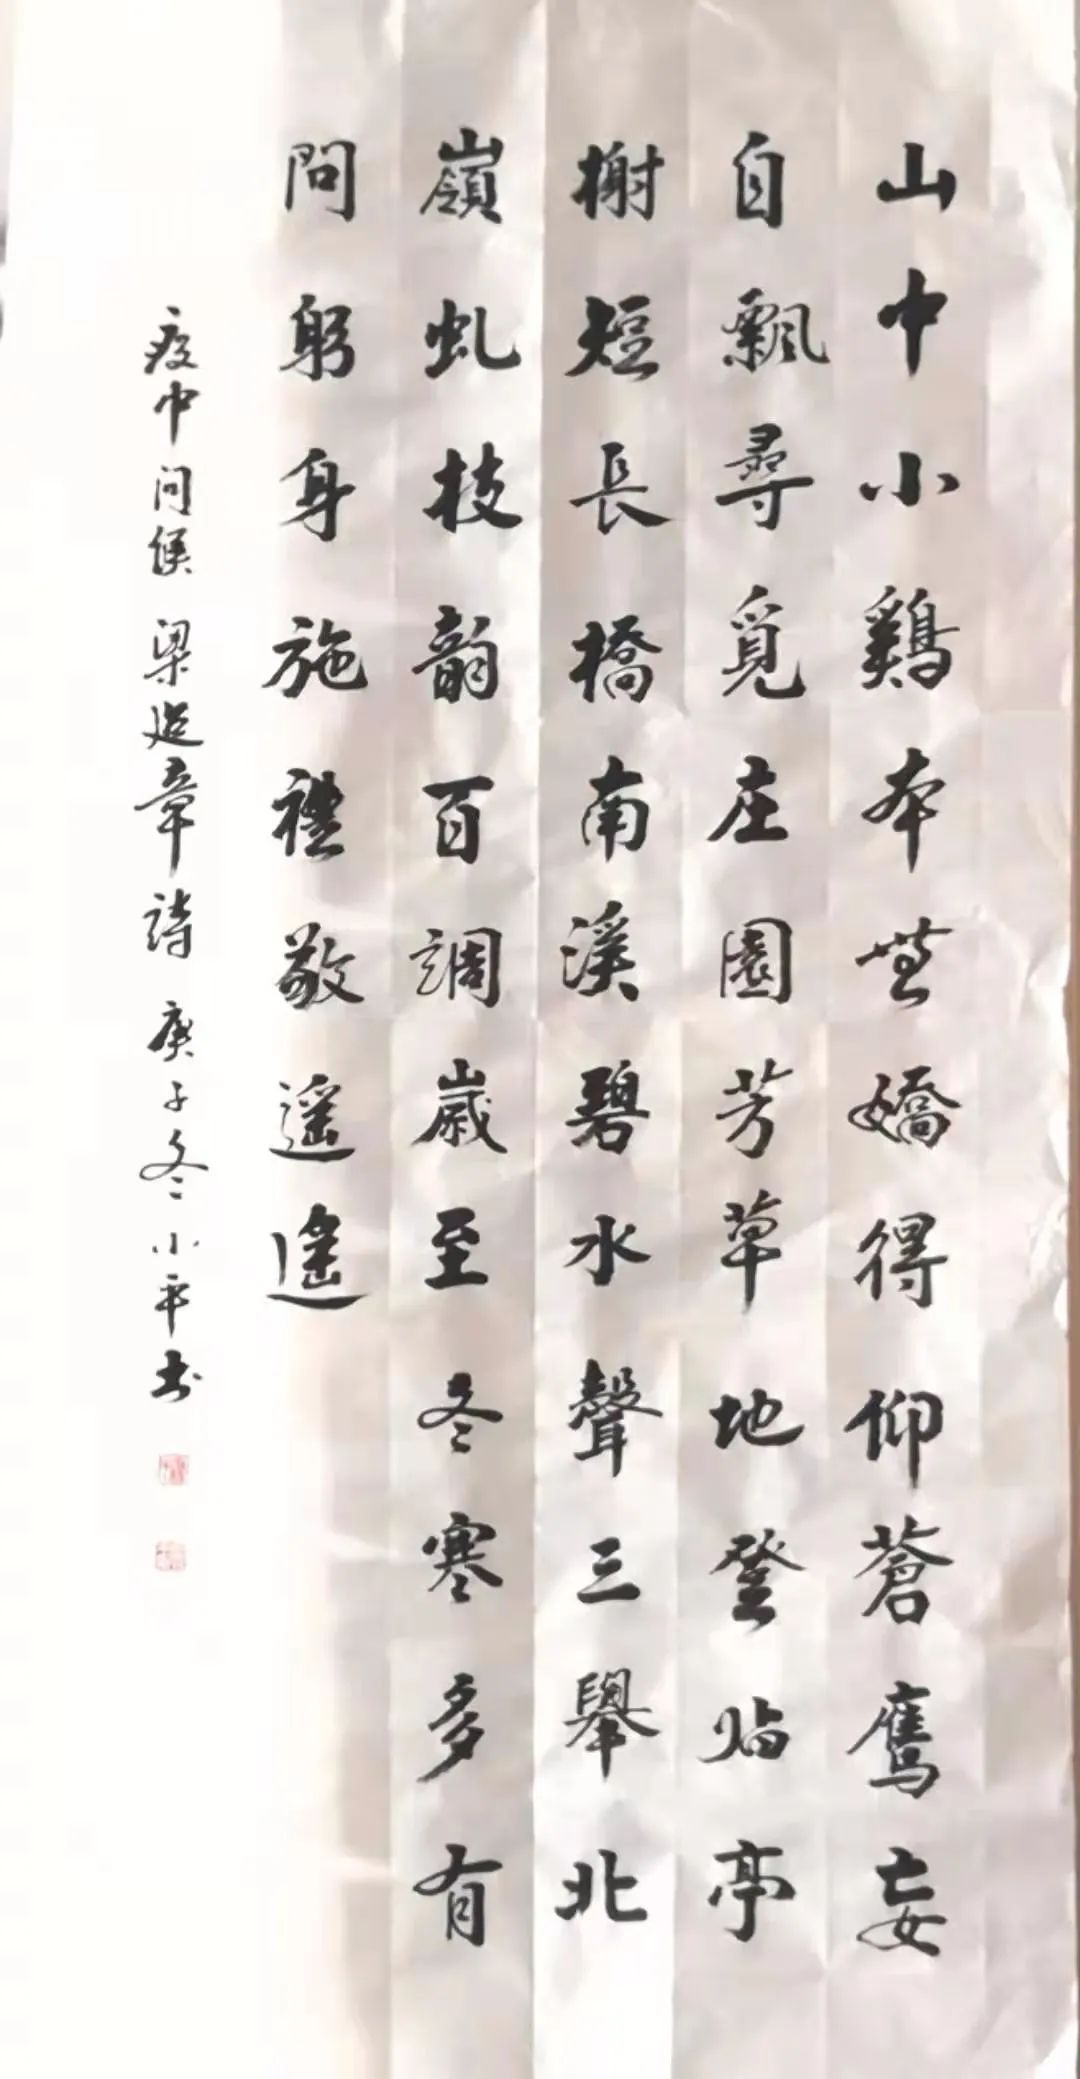 山中小鷄本無嬌得仰蒼鷹妄
自飄尋覓庄園芳草地登临亭
榭短長橋南溪碧水聲三舉北
嶺虬枝韵百調歲至冬寒多有
問躬身施禮敬遥遥
疫中问候 梁章詩 庚子冬 小平书